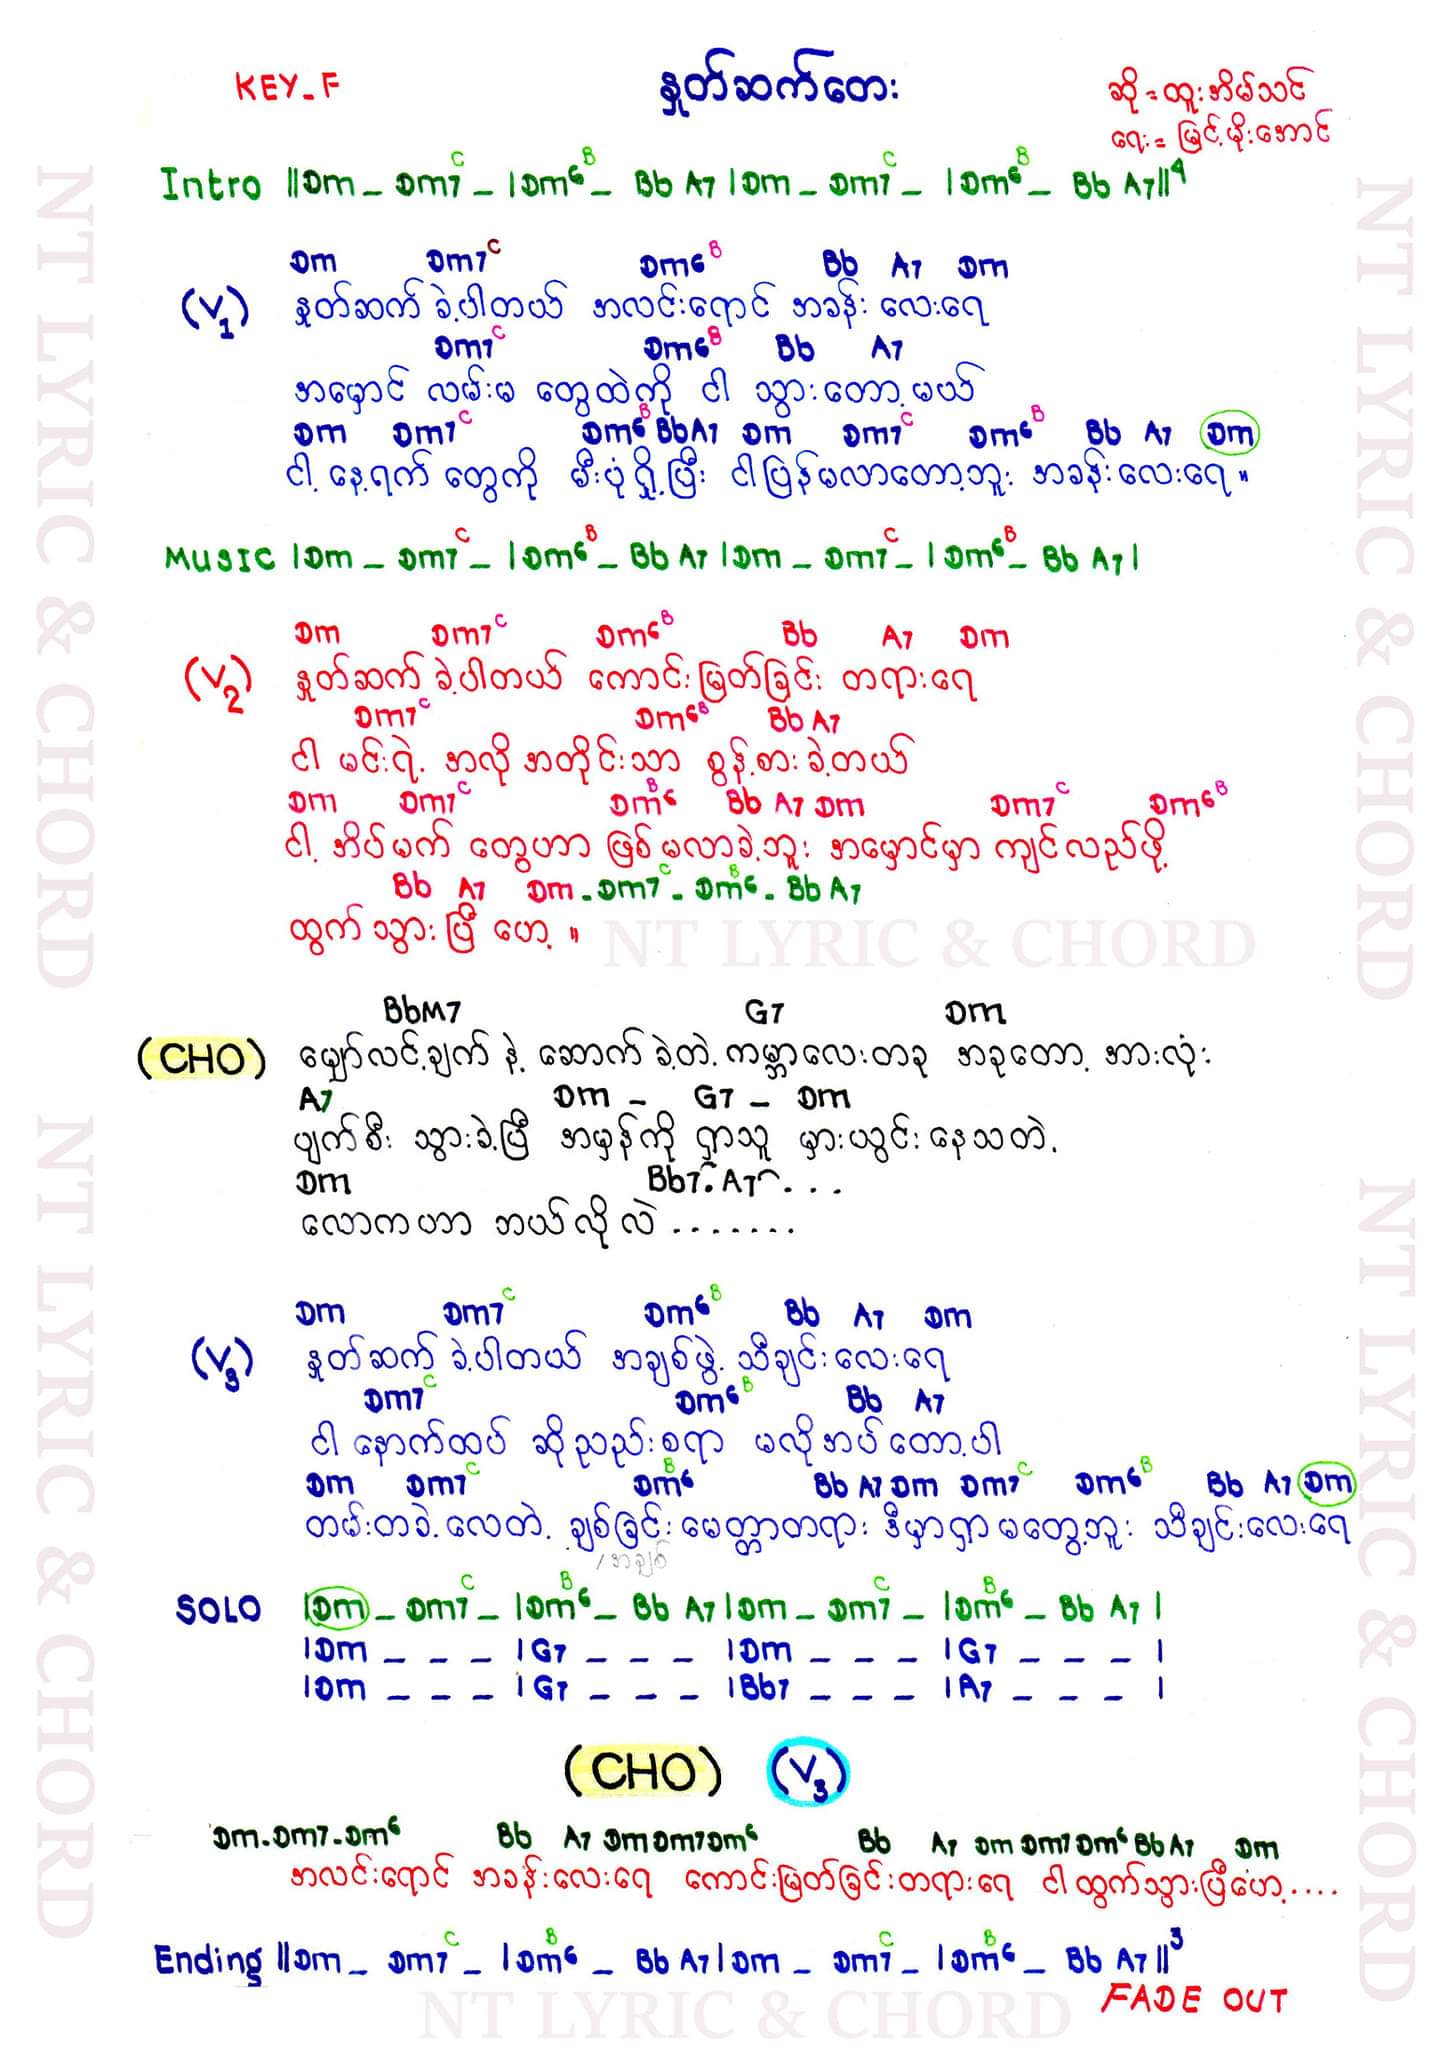 KEY_F
နှုတ်ဆက်တေး
ဆို = ထူးအိမ်သင်
ရေး = မြင့်မိုးအောင်
Intro ||Dm _ Dm7 C _ |Dm6 B _ Bb A7 |Dm _ Dm7 C _ |Dm6 B _ Bb A7|| 4
Dm Dm7 C Dm6 B Bb A7 Dm
(V1) နှုတ်ဆက် ခဲ့ပါတယ် အလင်းရောင် အခန်း လေးရေ
Dm7 C Dm6 B Bb A7
အမှောင် လမ်းမ တွေထဲကို ငါ သွားတော့မယ်
Dm Dm7 C Dm6 B Bb A7 Dm Dm7 C Dm6 B Bb A7 Dm
ငါ့ နေ့ရက် တွေကို မီးပုံရှို့ပြီး ငါပြန်မလာတော့ဘူး အခန်းလေးရေ။
MUSIC |Dm _ Dm7 C _ |Dm6 B _ Bb A7 |Dm _ Dm7 C _ |Dm6 B _ Bb A7|
Dm Dm7 C Dm6 B Bb A7 Dm
(V2) နှုတ်ဆက် ခဲ့ပါတယ် ကောင်းမြတ်ခြင်း တရားရေ
Dm7 C Dm6 B Bb A7
ငါ မင်းရဲ့ အလို အတိုင်းသာ စွန့်စားခဲ့တယ်
Dm Dm7 C Dm6 B Bb A7 Dm Dm7 C Dm6 B
ငါ့ အိပ်မက် တွေဟာ ဖြစ်မလာခဲ့ဘူး အမှောင်မှာ ကျင်လည်ဖို့
Bb A7 Dm - Dm7 C - Dm6 B - Bb A7
ထွက် သွားပြီ ဟေ့ ။
NT LYRIC & CHORD
BbM7 G7 Dm
(CHO) မျှော်လင့်ချက် နဲ့ ဆောက်ခဲ့တဲ့ ကမ္ဘာလေးတခု အခုတော့ အားလုံး
A7 Dm _ G7 _ Dm
ပျက်စီး သွားခဲ့ပြီ အမှန်ကို ရှာသူ မှားယွင်းနေသတဲ့
Dm Bb7 . A7 . . .
လောကဟာ ဘယ်လိုလဲ .......
Dm Dm7 C Dm6 B Bb A7 Dm
(V3) နှုတ်ဆက် ခဲ့ပါတယ် အချစ်ဖွဲ့ သီချင်းလေးရေ
Dm7 C Dm6 B Bb A7
ငါ နောက်ထပ် ဆိုညည်းစရာ မလိုအပ်တော့ပါ
Dm Dm7 C Dm6 B Bb A7 Dm Dm7 C Dm6 B Bb A7 Dm
တမ်းတခဲ့လေတဲ့ ချစ်ခြင်းမေတ္တာတရား ဒီမှာရှာမတွေ့ဘူး သီချင်းလေးရေ
/ အချစ်
SOLO |Dm _ Dm7 C _ |Dm6 B _ Bb A7 |Dm _ Dm7 C _ |Dm6 B _ Bb A7 |
|Dm _ _ _ |G7 _ _ _ |Dm _ _ _ |G7 _ _ _ |
|Dm _ _ _ |G7 _ _ _ |Bb7 _ _ _ |A7 _ _ _ |
(CHO) (V3)
Dm-Dm7-Dm6 Bb A7 Dm Dm7 Dm6 Bb A7 Dm Dm7 Dm6 Bb A7 Dm
အလင်းရောင် အခန်းလေးရေ ကောင်းမြတ်ခြင်းတရားရေ ငါထွက်သွားပြီဟေ့....
Ending ||Dm _ Dm7 C _ |Dm6 B _ Bb A7 |Dm _ Dm7 C _ |Dm6 B _ Bb A7|| 3
FADE OUT
NT LYRIC & CHORD
NT LYRIC & CHORD
NT LYRIC & CHORD
NT LYRIC & CHORD
NT LYRIC & CHORD